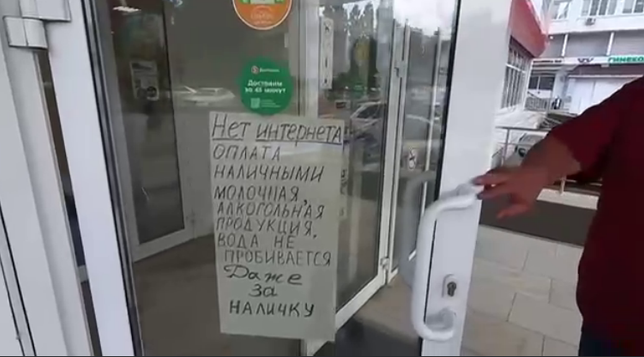 Доставим
за 45 минут
Нет интернета
ОПЛАТА
НАЛИЧНЫМИ
МОЛОЧНАЯ,
АЛКОГОЛЬНАЯ
ПРОДУКЦИЯ.
ВОДА НЕ
ПРОБИВАЕТСЯ
Даже
за
НАЛИЧКУ
ГИНЕКО